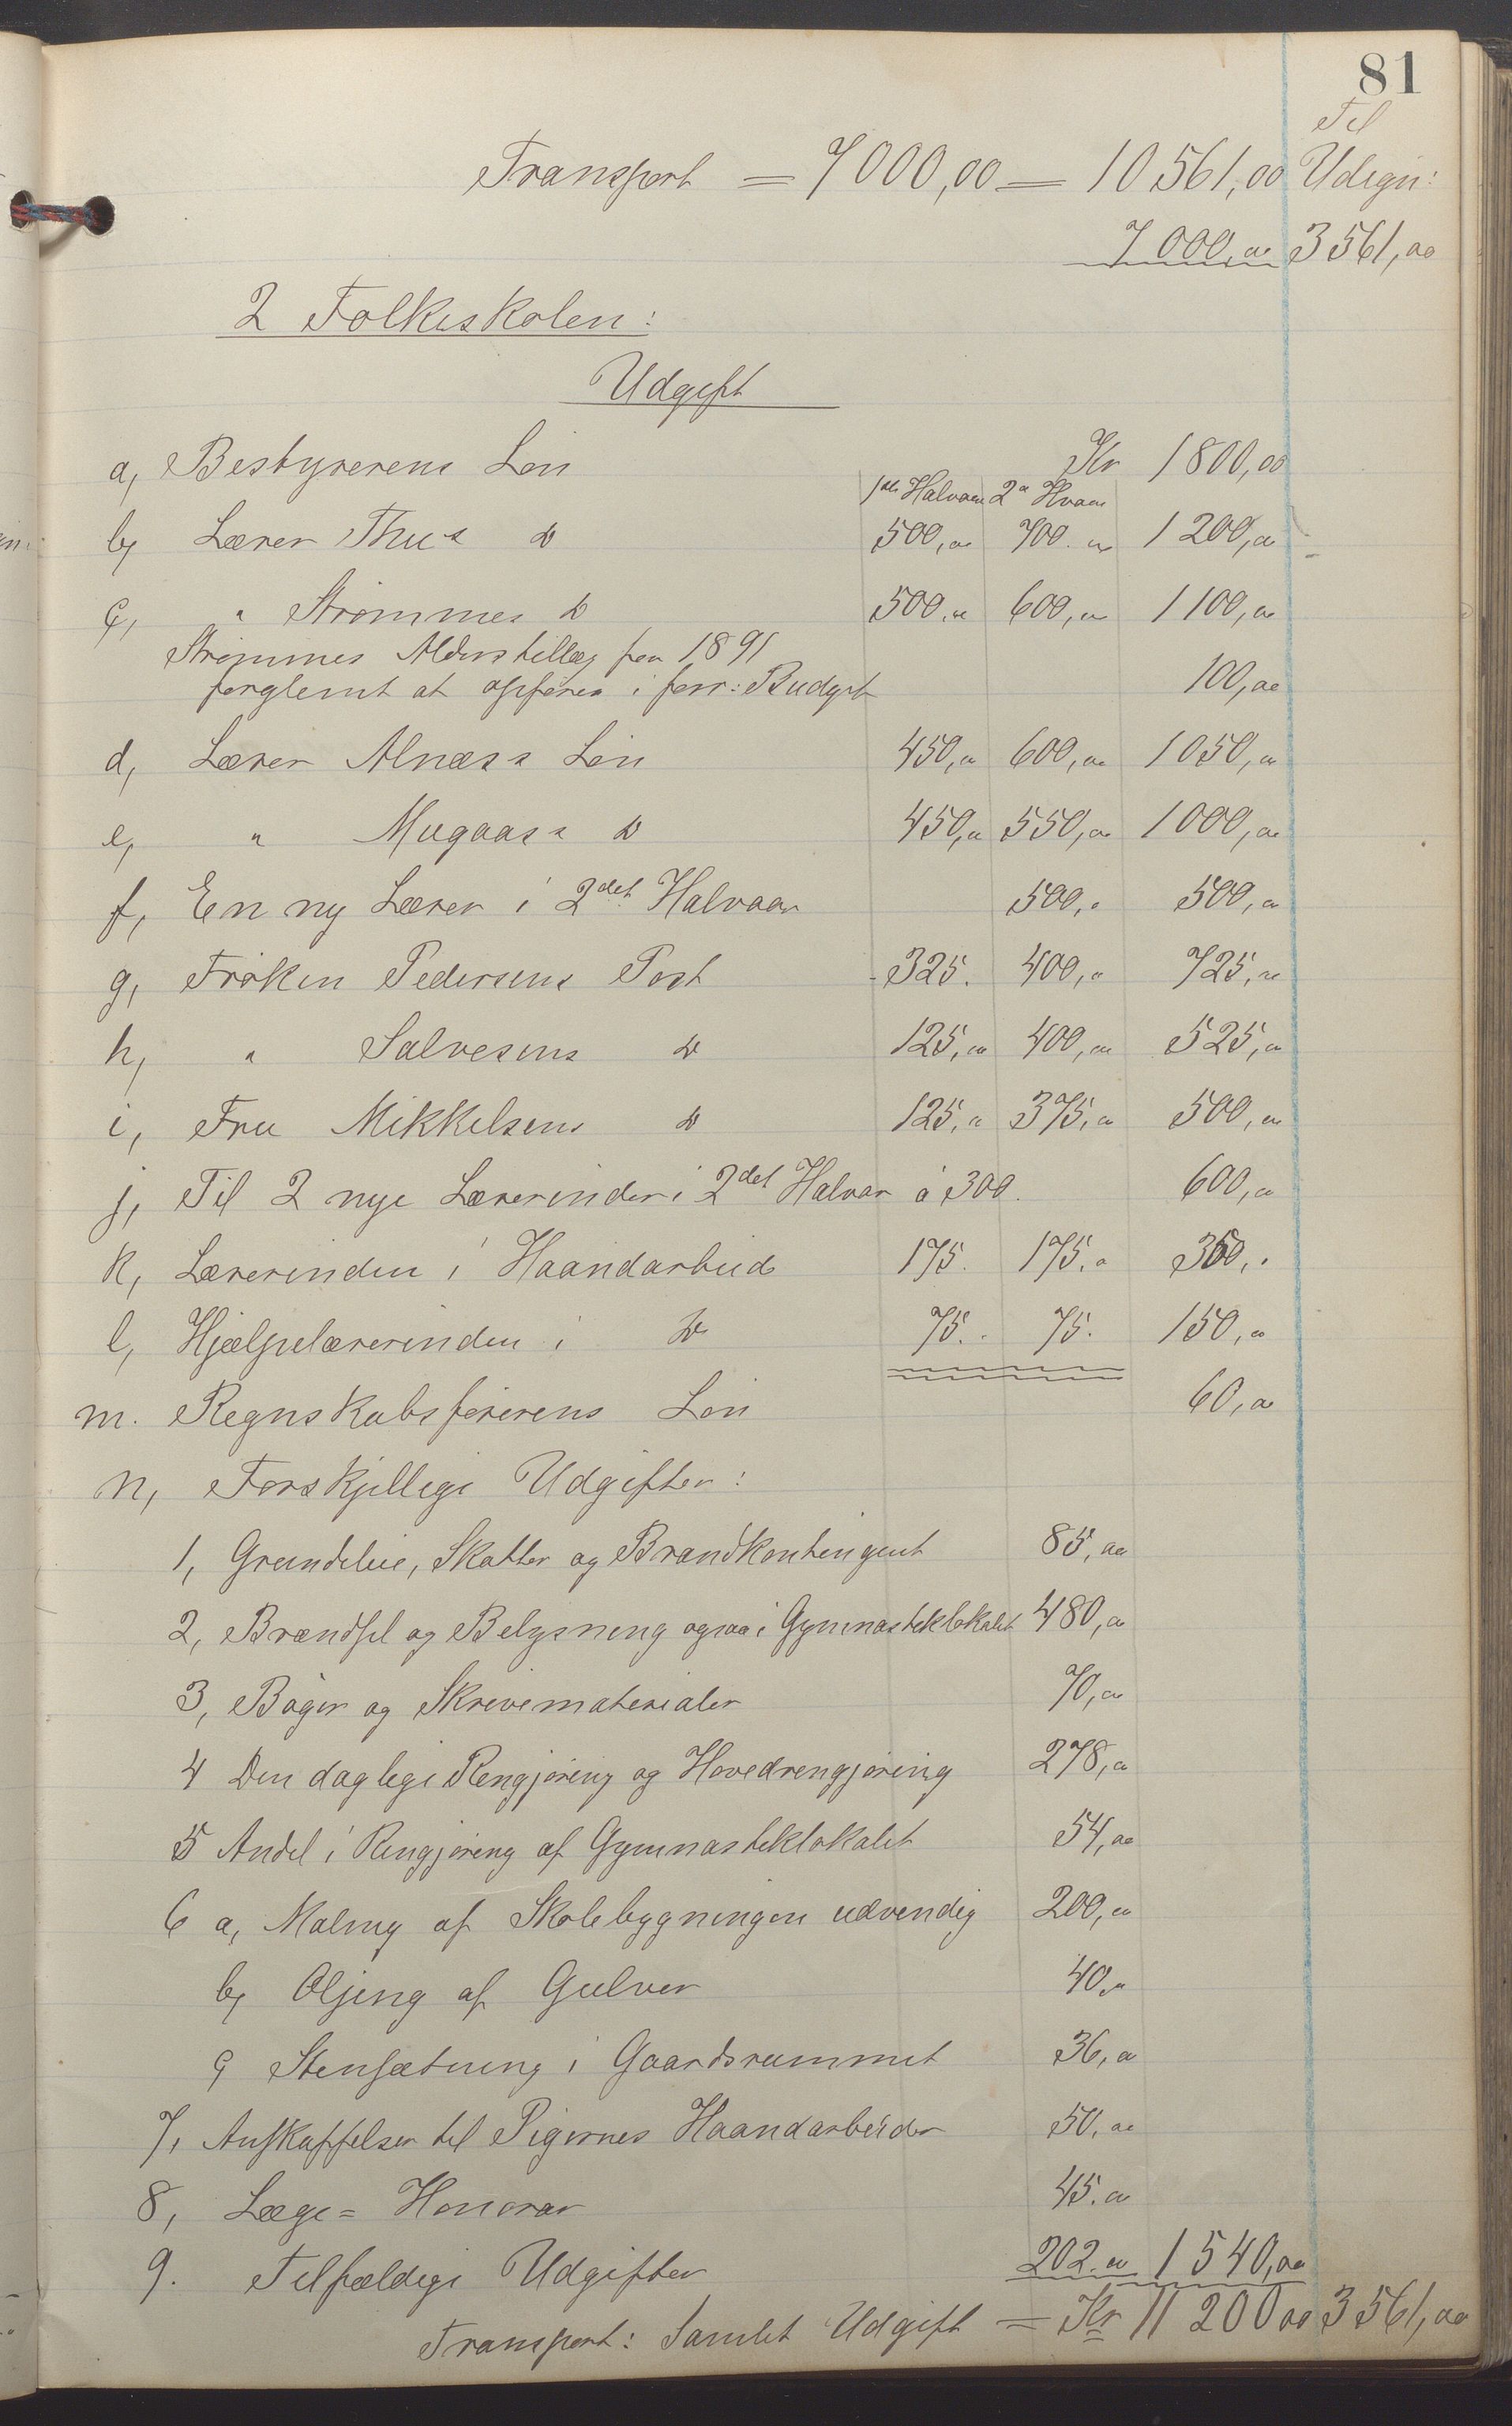 81
Til
Transport = 7000,00 = 10561,00 Udlign:
7000,00 3561,00
2 Folkeskolen:
Udgift
a, Bestyrerens Løn Kr 1800,00
1ste Halvaar 2det Hvaar
b, Lærer Thus do 500,00 700.00 1200,00
c, " Strømmes do 500.00 600,00 1100,00
Strømmes Alderstillæg for 1891
forglemt at opføres i forr: Budget 100,00
d, Lærer Alnæss Løn 450,00 600,00 1050,00
e, " Mugaass do 450,00 550,00 1000,00
f, En ny Lærer i 2det Halvaar 500,00 500,00
g, Frøken Pedersens Post 325. 400,00 725,00
h, " Salvesens do 125,00 400,00 525,00
i, Fru Mikkelsens do 125,00 375,00 500,00
j, Til 2 nye Lærerinder i 2det Halvar á 300. 600,00
k, Lærerinden i Haandarbeid 175. 175.00 350,00
l, Hjælpelærerinden i do 75.. 75. 150,00
m. Regnskabsførerens Løn 60,00
n, Forskjellige Udgifter:
1, Grundleie, Skatter og Brandkontingent 85,00
2, Brændsel og Belysning ogsaa i Gymnastiklokalet 480,00
3, Bøger og Skrivematerialer 70,00
4 Den daglige Rengjøring og Hovedrengjøring 278,00
5 Andel i Rengjøring af Gymnastiklokalet 54,00
6 a, Maling af Skolebygningen udvendig 200,00
b, Oljing af Gulver 40,00
c Stensætning i Gaardsrummet 36,00
7, Anskaffelser til Pigernes Haandarbeider 50,00
8, Læge= Honorar 45.00
9. Tilfældige Udgifter 202.00 1540,00
Transport: Samlet Udgift = Kr 11200 00 3561,00